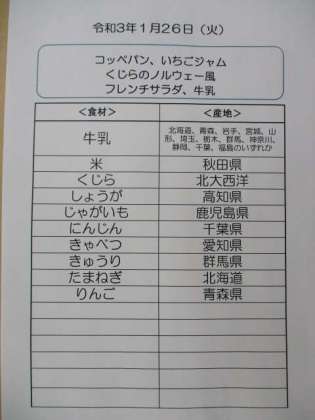 令和3年1月26日（火）
コッペパン、いちごジャム
くじらのノルウェー風
フレンチサラダ、牛乳
＜食材＞ ＜産地＞
牛乳 北海道、青森、岩手、宮城、山
形、埼玉、栃木、群馬、神奈川、
静岡、千葉、福島のいずれか
米 秋田県
くじら 北大西洋
しょうが 高知県
じゃがいも 鹿児島県
にんじん 千葉県
きゃべつ 愛知県
きゅうり 群馬県
たまねぎ 北海道
りんご 青森県